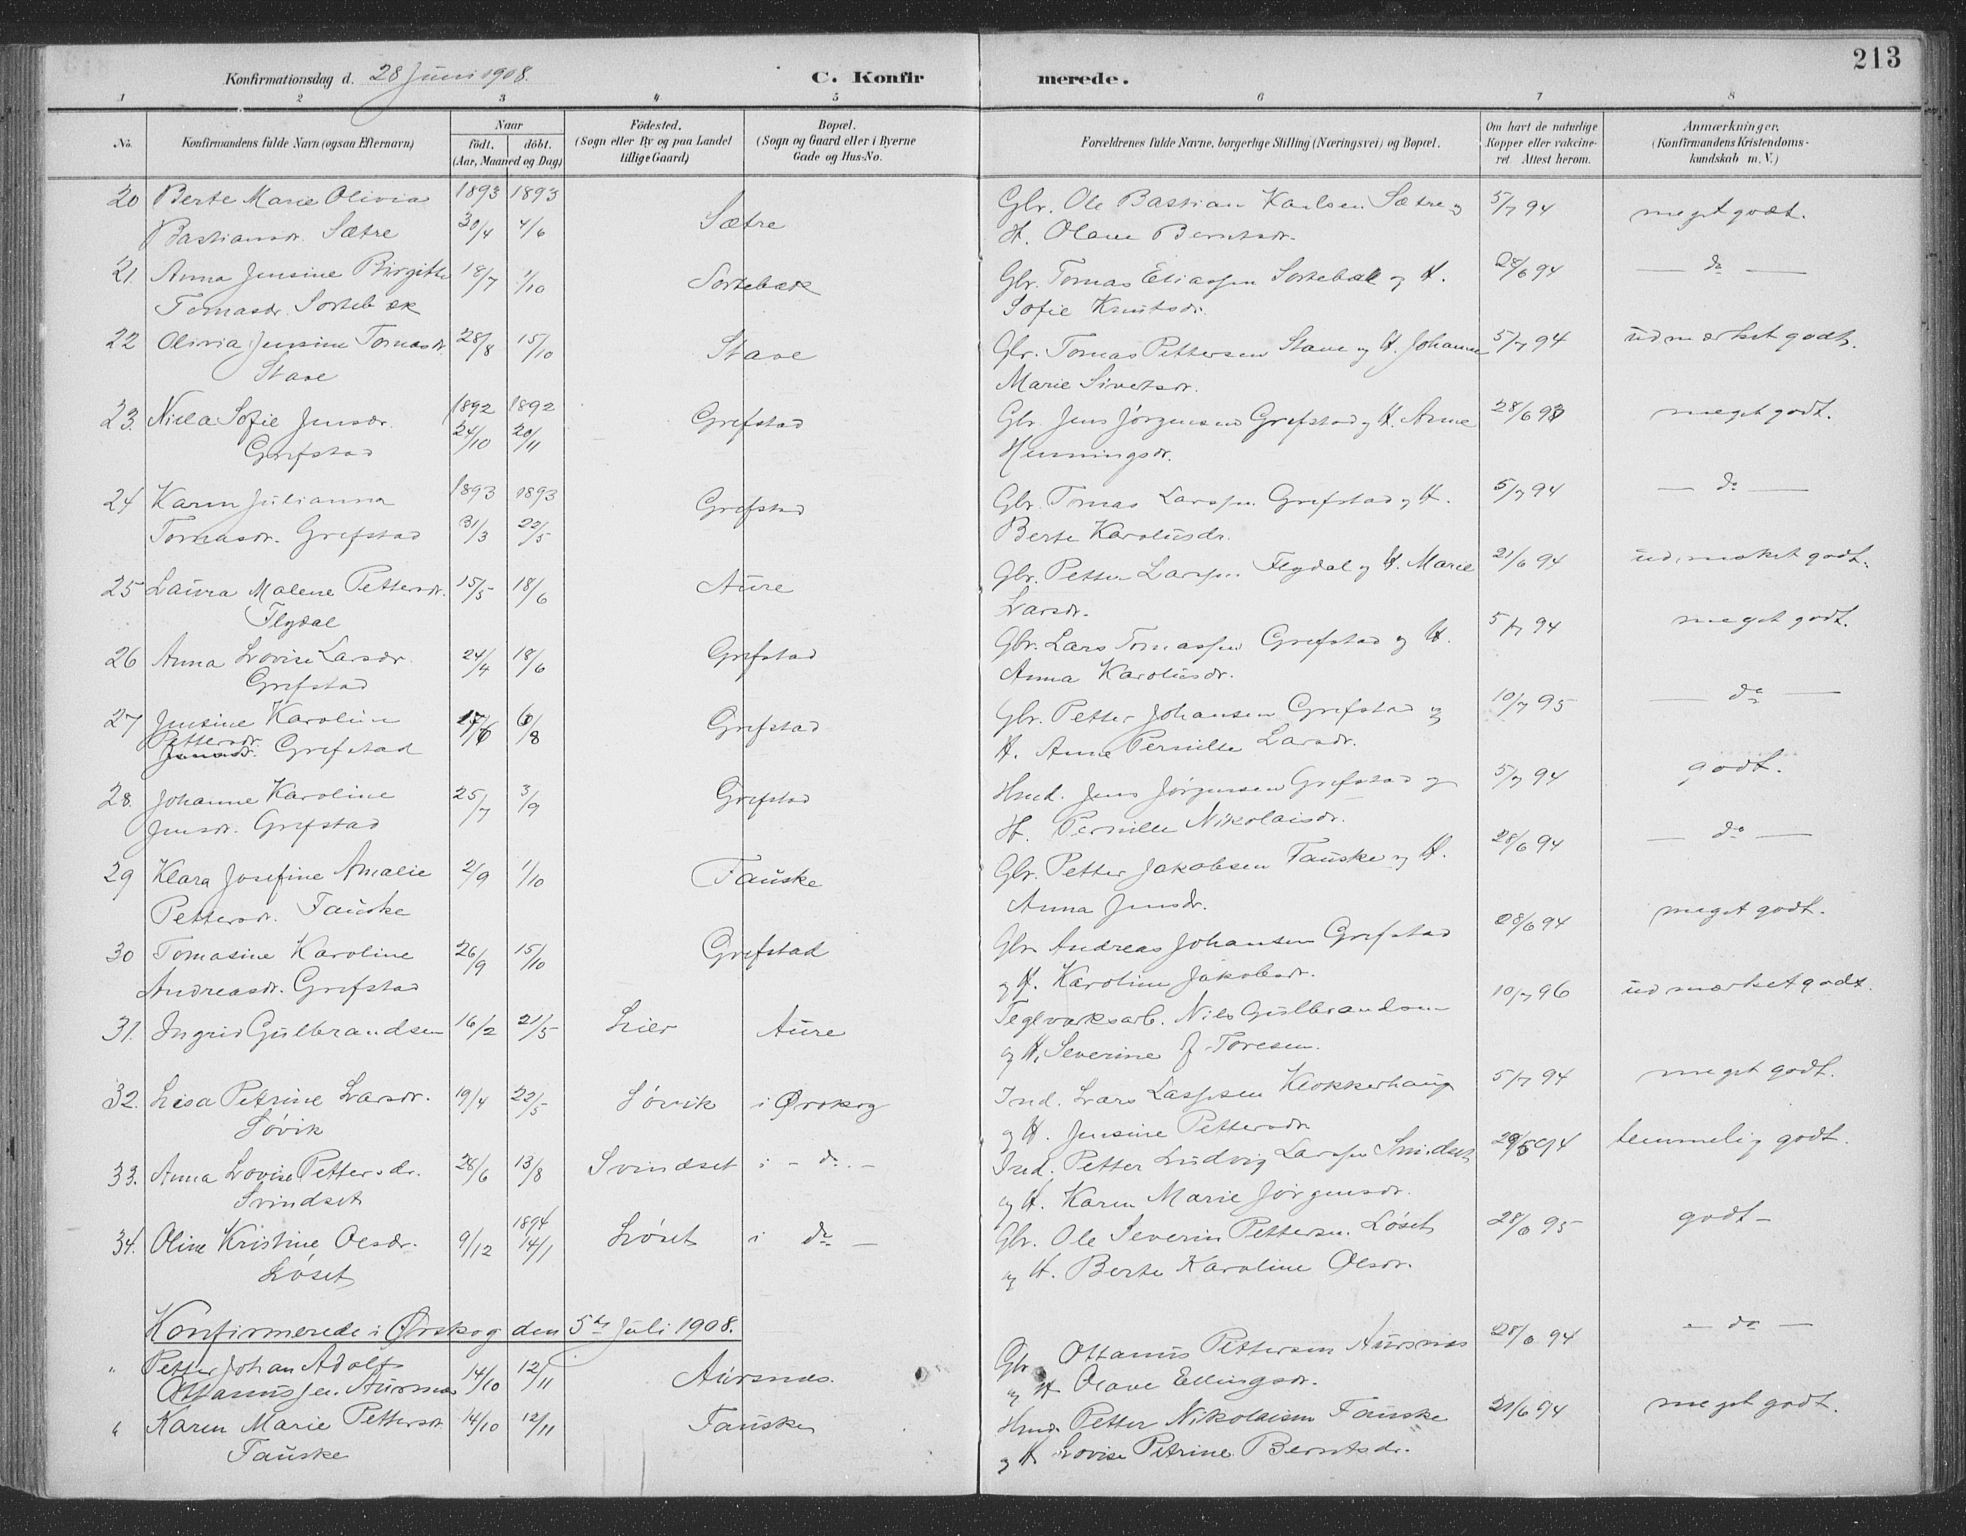 213
Konfirmationsdag d. 28 Juni 1908.
C. Konfirmerede.
1 2 3 4 5 6 7 8
No. Konfirmandens fulde Navn (ogsaa Efternavn) Naar födt. döbt. (Aar, Maaned og Dag) Födested. (Sogn eller By og paa Landet tillige Gaard) Bopæl. (Sogn og Gaard eller i Byerne Gade og Hus-No. Forældrenes fulde Navne, borgerlige Stilling (Næringsvei) og Bopæl. Om havt de naturlige Kopper eller vaccineret. Attest herom. Anmærkninger. (Konfirmandens Kristendomskundskab m. V.)
20 Berte Marie Olivia 1893 1893 Sætre Gbr. Ole Bastian Karlsen Sætre og 5/7 94 meget godt.
Bastiansdr. Sætre 30/4 4/6 H. Olave Berntsdr.
21. Anna Jensine Birgitte 18/7 1/10 Sortebæk Gbr. Tomas Eliassen Sortebæk og H. 28/6 94 — do —
Tomasdr. Sortebæk Sofie Knutsdr.
22 Olivia Jensine Tomasdr. 28/8 15/10 Stave Gbr. Tomas Pettersen Stave og H. Johanne 5/7 94 udmærket godt.
Stave Marie Sivertsdr.
23. Niela Sofie Jensdr. 1892 1892 Grefstad Gbr. Jens Jørgensen Grefstad og H. Anne 28/6 93 meget godt.
Grefstad 24/10 20/11 Henningsdr.
24 Karen Julianna 1893 1893 Grefstad Gbr. Tomas Larssen Grefstad og H. 5/7 94 — do —
Tomasdr. Grefstad 31/3 22/5 Berte Karolusdr.
25 Laura Malene Pettersdr. 15/5 18/6 Aure Gbr. Petter Larssen Flydal og H. Marie 21/6 94 udmærket godt.
Flydal Larsdr.
26 Anna Lovise Larsdr. 24/4 18/6 Grefstad Gbr. Lars Tomassen Grefstad og H. 5/7 94 meget godt.
Grefstad Anna Karolusdr.
27 Jensine Karoline 17/6 6/8 Grefstad Gbr. Petter Johansen Grefstad og 10/7 95 — do —
Pettersdr. Grefstad H. Anne Pernille Larsdr.
28. Johanne Karoline 25/7 3/9 Grefstad Hmd. Jens Jørgensen Grefstad og 5/7 94 godt.
Jensdr. Grefstad H. Pernille Nikolaisdr.
29 Klara Josefine Amalie 2/9 1/10 Fauske Gbr. Petter Jakobsen Fauske og H. 28/6 94 — do —
Pettersdr. Fauske Anna Jensdr.
30 Tomasine Karoline 26/9 15/10 Grefstad Gbr. Andreas Johansen Grefstad 28/6 94 meget godt.
Andreasdr. Grefstad og H. Karoline Jakobsdr.
31. Ingrid Gulbrandsen 16/2 21/5 Lier Aure Teglværksarb. Nils Gulbrandsen 10/7 96 udmærket godt.
og H. Severine f. Toresen.
32. Lisa Petrine Larsdr. 19/4 22/5 Søvik i Ørskog Ind. Lars Lassesen Klokkerhaug 5/7 94 meget godt.
Søvik og H. Jensine Pettersdr.
33. Anna Lovise Pettersdr. 28/6 13/8 Svindset i - do. - Ind. Petter Ludvig Larssen Svindset 94 temmelig godt.
Svindset og H. Karen Marie Jørgensdr.
34. Oline Kristine Olsdr. 9/12 1894 14/1 Løset i do — Gbr. Ole Severin Pettersen Løset 28/6 95 godt —
Løset og H. Berte Karoline Olsdr.
Konfirmerede i Ørskog den 5te Juli 1908.
" Petter Johan Adolf 14/10 12/11 Aursnes. Gbr. Ottanius Pettersen Aursnes 28/6 94 — do —
Ottaniussen Aursnes og H. Olave Ellingsdr.
" Karen Marie Pettersdr. 14/10 12/11 Fauske Hmd. Petter Nikolaisen Fauske 21/6 94 meget godt.
Fauske og H. Lovise Petrine Berntsdr.